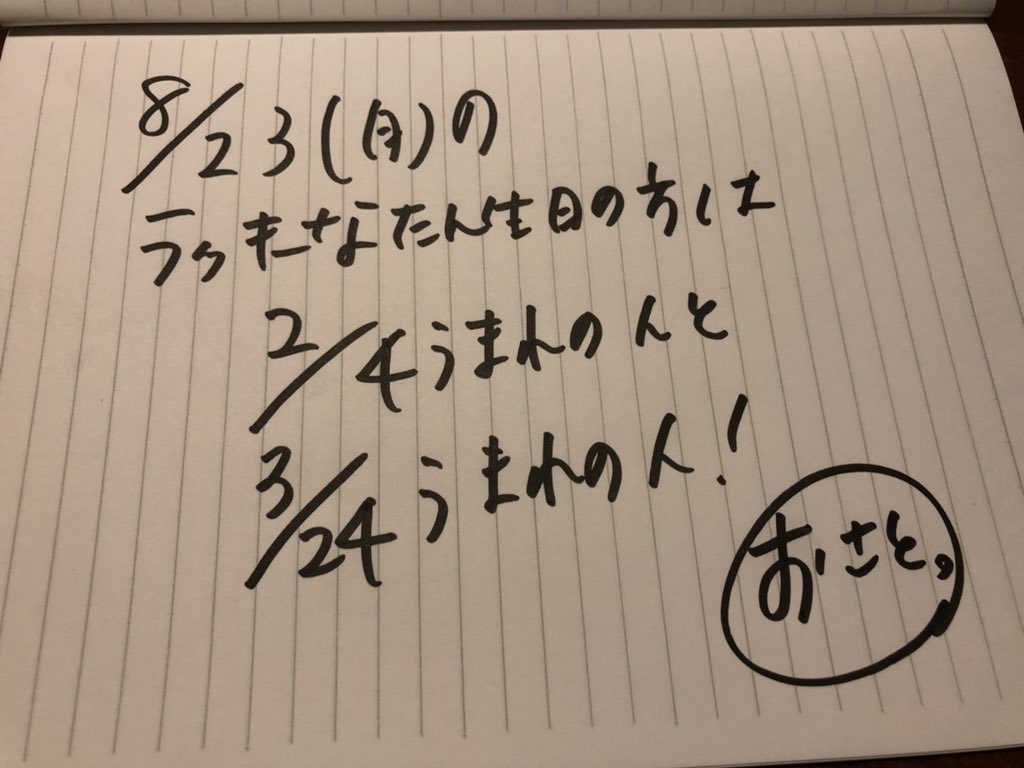 8/23(月)の
ラッキーなたん生日の方は
2/4うまれの人と
3/24うまれの人!
おさと。